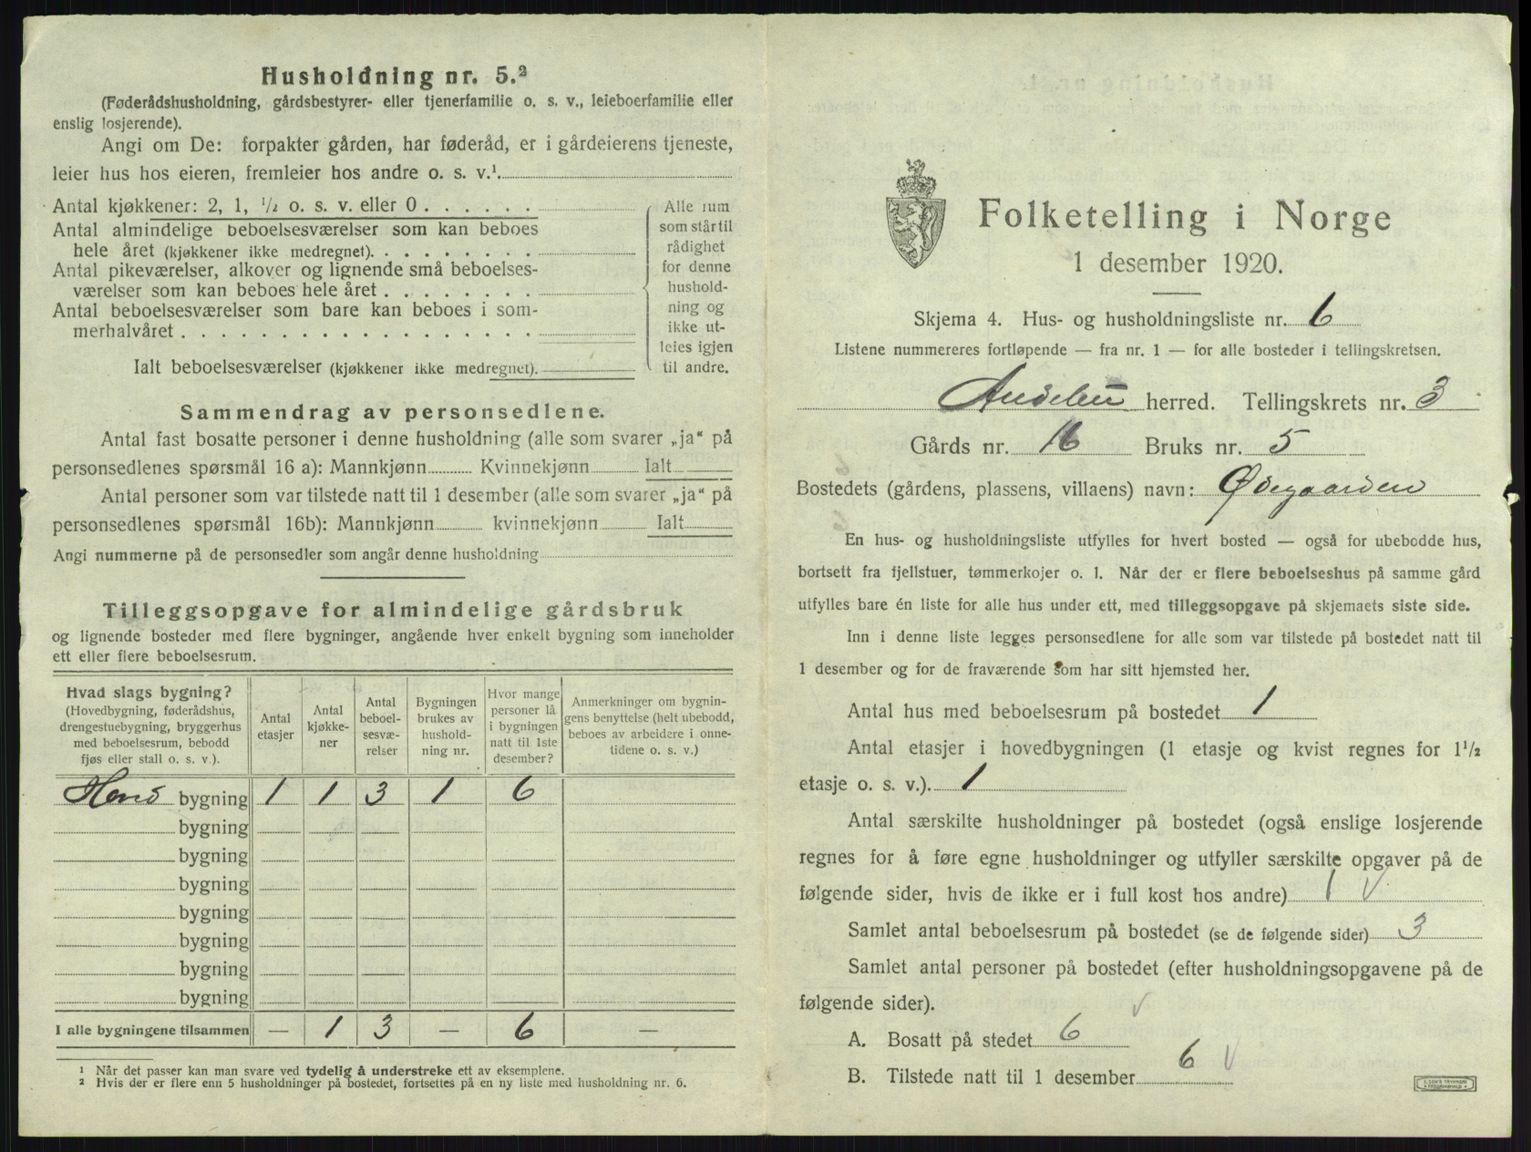 Husholdning nr. 5.²
(Føderådshusholdning, gårdsbestyrer- eller tjenerfamilie o. s. v., leieboerfamilie eller
enslig losjerende).
Angi om De: forpakter gården, har føderåd, er i gårdeierens tjeneste,
leier hus hos eieren, fremleier hos andre o. s. v.¹
Antal kjøkkener: 2, 1, ½ o. s. v. eller 0
Antal almindelige beboelsesværelser som kan beboes
hele året (kjøkkener ikke medregnet).
Antal pikeværelser, alkover og lignende små beboelses-
værelser som kan beboes hele året
Antal beboelsesværelser som bare kan beboes i som-
merhalvåret
Ialt beboelsesværelser (kjøkkener ikke medregnet).
Alle rum
som står til
rådighet
for denne
hushold-
ning og
ikke ut-
leies igjen
til andre.
Sammendrag av personsedlene.
Antal fast bosatte personer i denne husholdning (alle som svarer „ja“ på
personsedlenes spørsmål 16 a): Mannkjønn Kvinnekjønn Ialt
Antal personer som var tilstede natt til 1 desember (alle som svarer „ja“ på
personsedlenes spørsmål 16b): Mannkjønn kvinnekjønn Ialt
Angi nummerne på de personsedler som angår denne husholdning
Tilleggsopgave for almindelige gårdsbruk
og lignende bosteder med flere bygninger, angående hver enkelt bygning som inneholder
ett eller flere beboelsesrum.
Hvad slags bygning?
(Hovedbygning, føderådshus,
drengestuebygning, bryggerhus
med beboelsesrum, bebodd
fjøs eller stall o. s. v.).
Antal
etasjer
Antal
kjøkke-
ner
Antal
beboel-
sesvæ-
relser
Bygningen
brukes av
hushold-
ning nr.
Hvor mange
personer lå
i bygningen
natt til 1ste
desember?
Anmerkninger om bygnin-
gens benyttelse (helt ubebodd,
beboes av arbeidere i onne-
tidene o. s. v.)
Hovd bygning 1 1 3 1 6
bygning
bygning
bygning
bygning
bygning
bygning
bygning
I alle bygningene tilsammen — 1 3 — 6 —
¹ Når det passer kan man svare ved tydelig å understreke ett av eksemplene.
² Hvis der er flere enn 5 husholdninger på bostedet, fortsettes på en ny liste med husholdning nr. 6.
Folketelling i Norge
1 desember 1920.
Skjema 4. Hus- og husholdningsliste nr. 6
Listene nummereres fortløpende — fra nr. 1 — for alle bosteder i tellingskretsen.
Andebu herred. Tellingskrets nr. 3
Gårds nr. 16 Bruks nr. 5
Bostedets (gårdens, plassens, villaens) navn: Ødegaarden
En hus- og husholdningsliste utfylles for hvert bosted — også for ubebodde hus,
bortsett fra fjellstuer, tømmerkojer o. l. Når der er flere beboelseshus på samme gård
utfylles bare én liste for alle hus under ett, med tilleggsopgave på skjemaets siste side.
Inn i denne liste legges personsedlene for alle som var tilstede på bostedet natt til
1 desember og for de fraværende som har sitt hjemsted her.
Antal hus med beboelsesrum på bostedet 1
Antal etasjer i hovedbygningen (1 etasje og kvist regnes for 1½
etasje o. s. v.). 1
Antal særskilte husholdninger på bostedet (også enslige losjerende
regnes for å føre egne husholdninger og utfyller særskilte opgaver på de
følgende sider, hvis de ikke er i full kost hos andre) 1 √
Samlet antal beboelsesrum på bostedet (se de følgende sider) 3
Samlet antal personer på bostedet (efter husholdningsopgavene på de
følgende sider). √
A. Bosatt på stedet 6
B. Tilstede natt til 1 desember 6 √